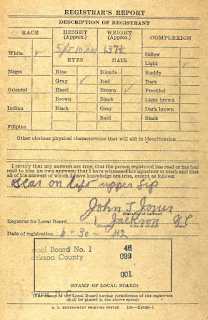 REGISTRAR'S REPORT
DESCRIPTION OF REGISTRANT
RACE HEIGHT (Approx.) WEIGHT (Approx.) COMPLEXION
White ✓ 5 ft 10 137 Sallow
EYES HAIR Light
Negro Blue Blonde Ruddy
Gray Red Dark
Oriental Hazel Brown Freckled
Brown Black Light brown
Indian Black Gray Dark brown
Bald Black
Filipino
Other obvious physical characteristics that will aid in identification
I certify that my answers are true; that the person registered has read or has had
read to him his own answers; that I have witnessed his signature or mark and that
all of his answers of which I have knowledge are true, except as follows:
Scar on left upper lip
John J Jones
Registrar for Local Board 1 Jackson
Date of registration 6-30-42
Local Board No. 1 46
Jackson County 099
001
STAMP OF LOCAL BOARD
(The stamp of the Local Board having jurisdiction of the registrant
shall be placed in the above space)
U. S. GOVERNMENT PRINTING OFFICE